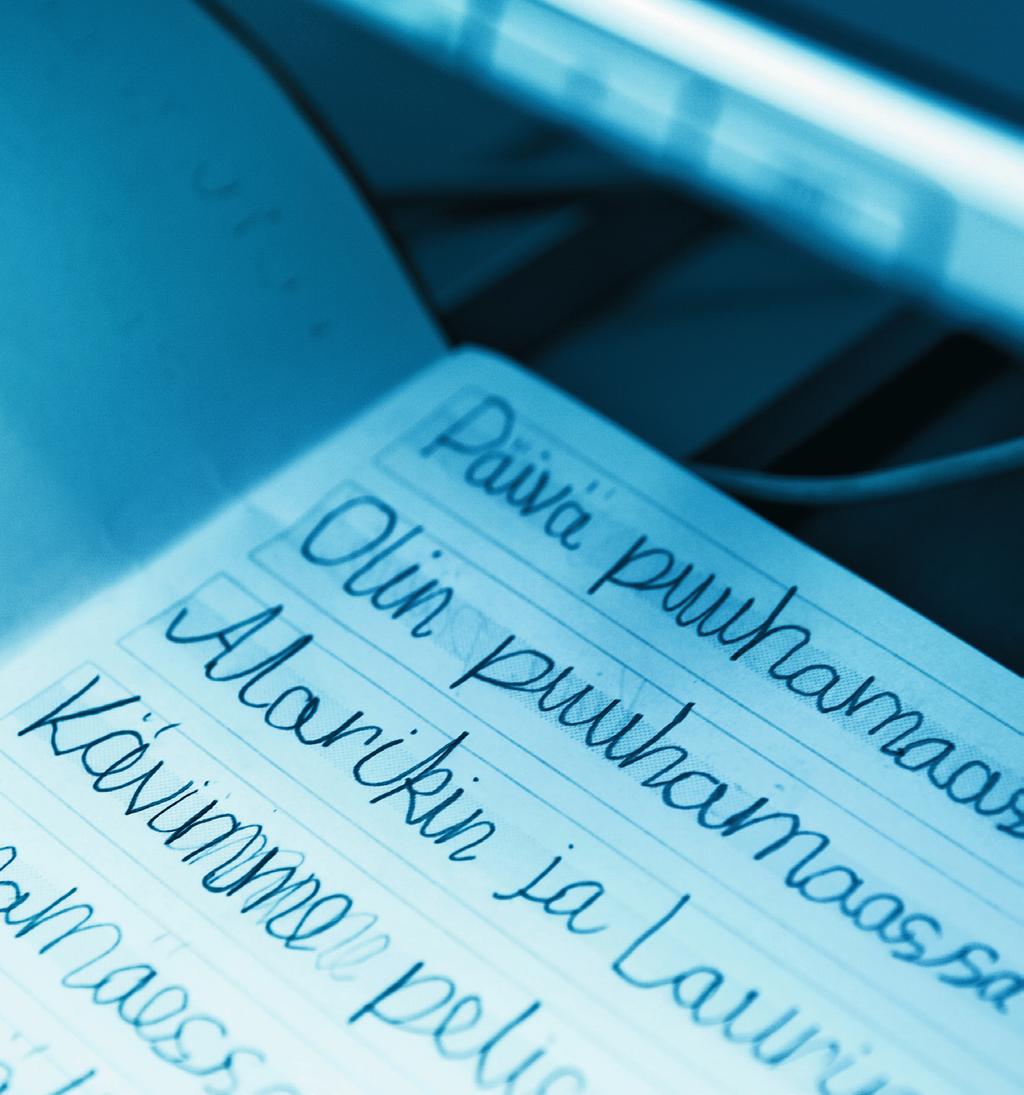 Päivä puuhamaas
Olin puuhamaassa
Alarikin ja Lauri
Kävimme peli
amäessä